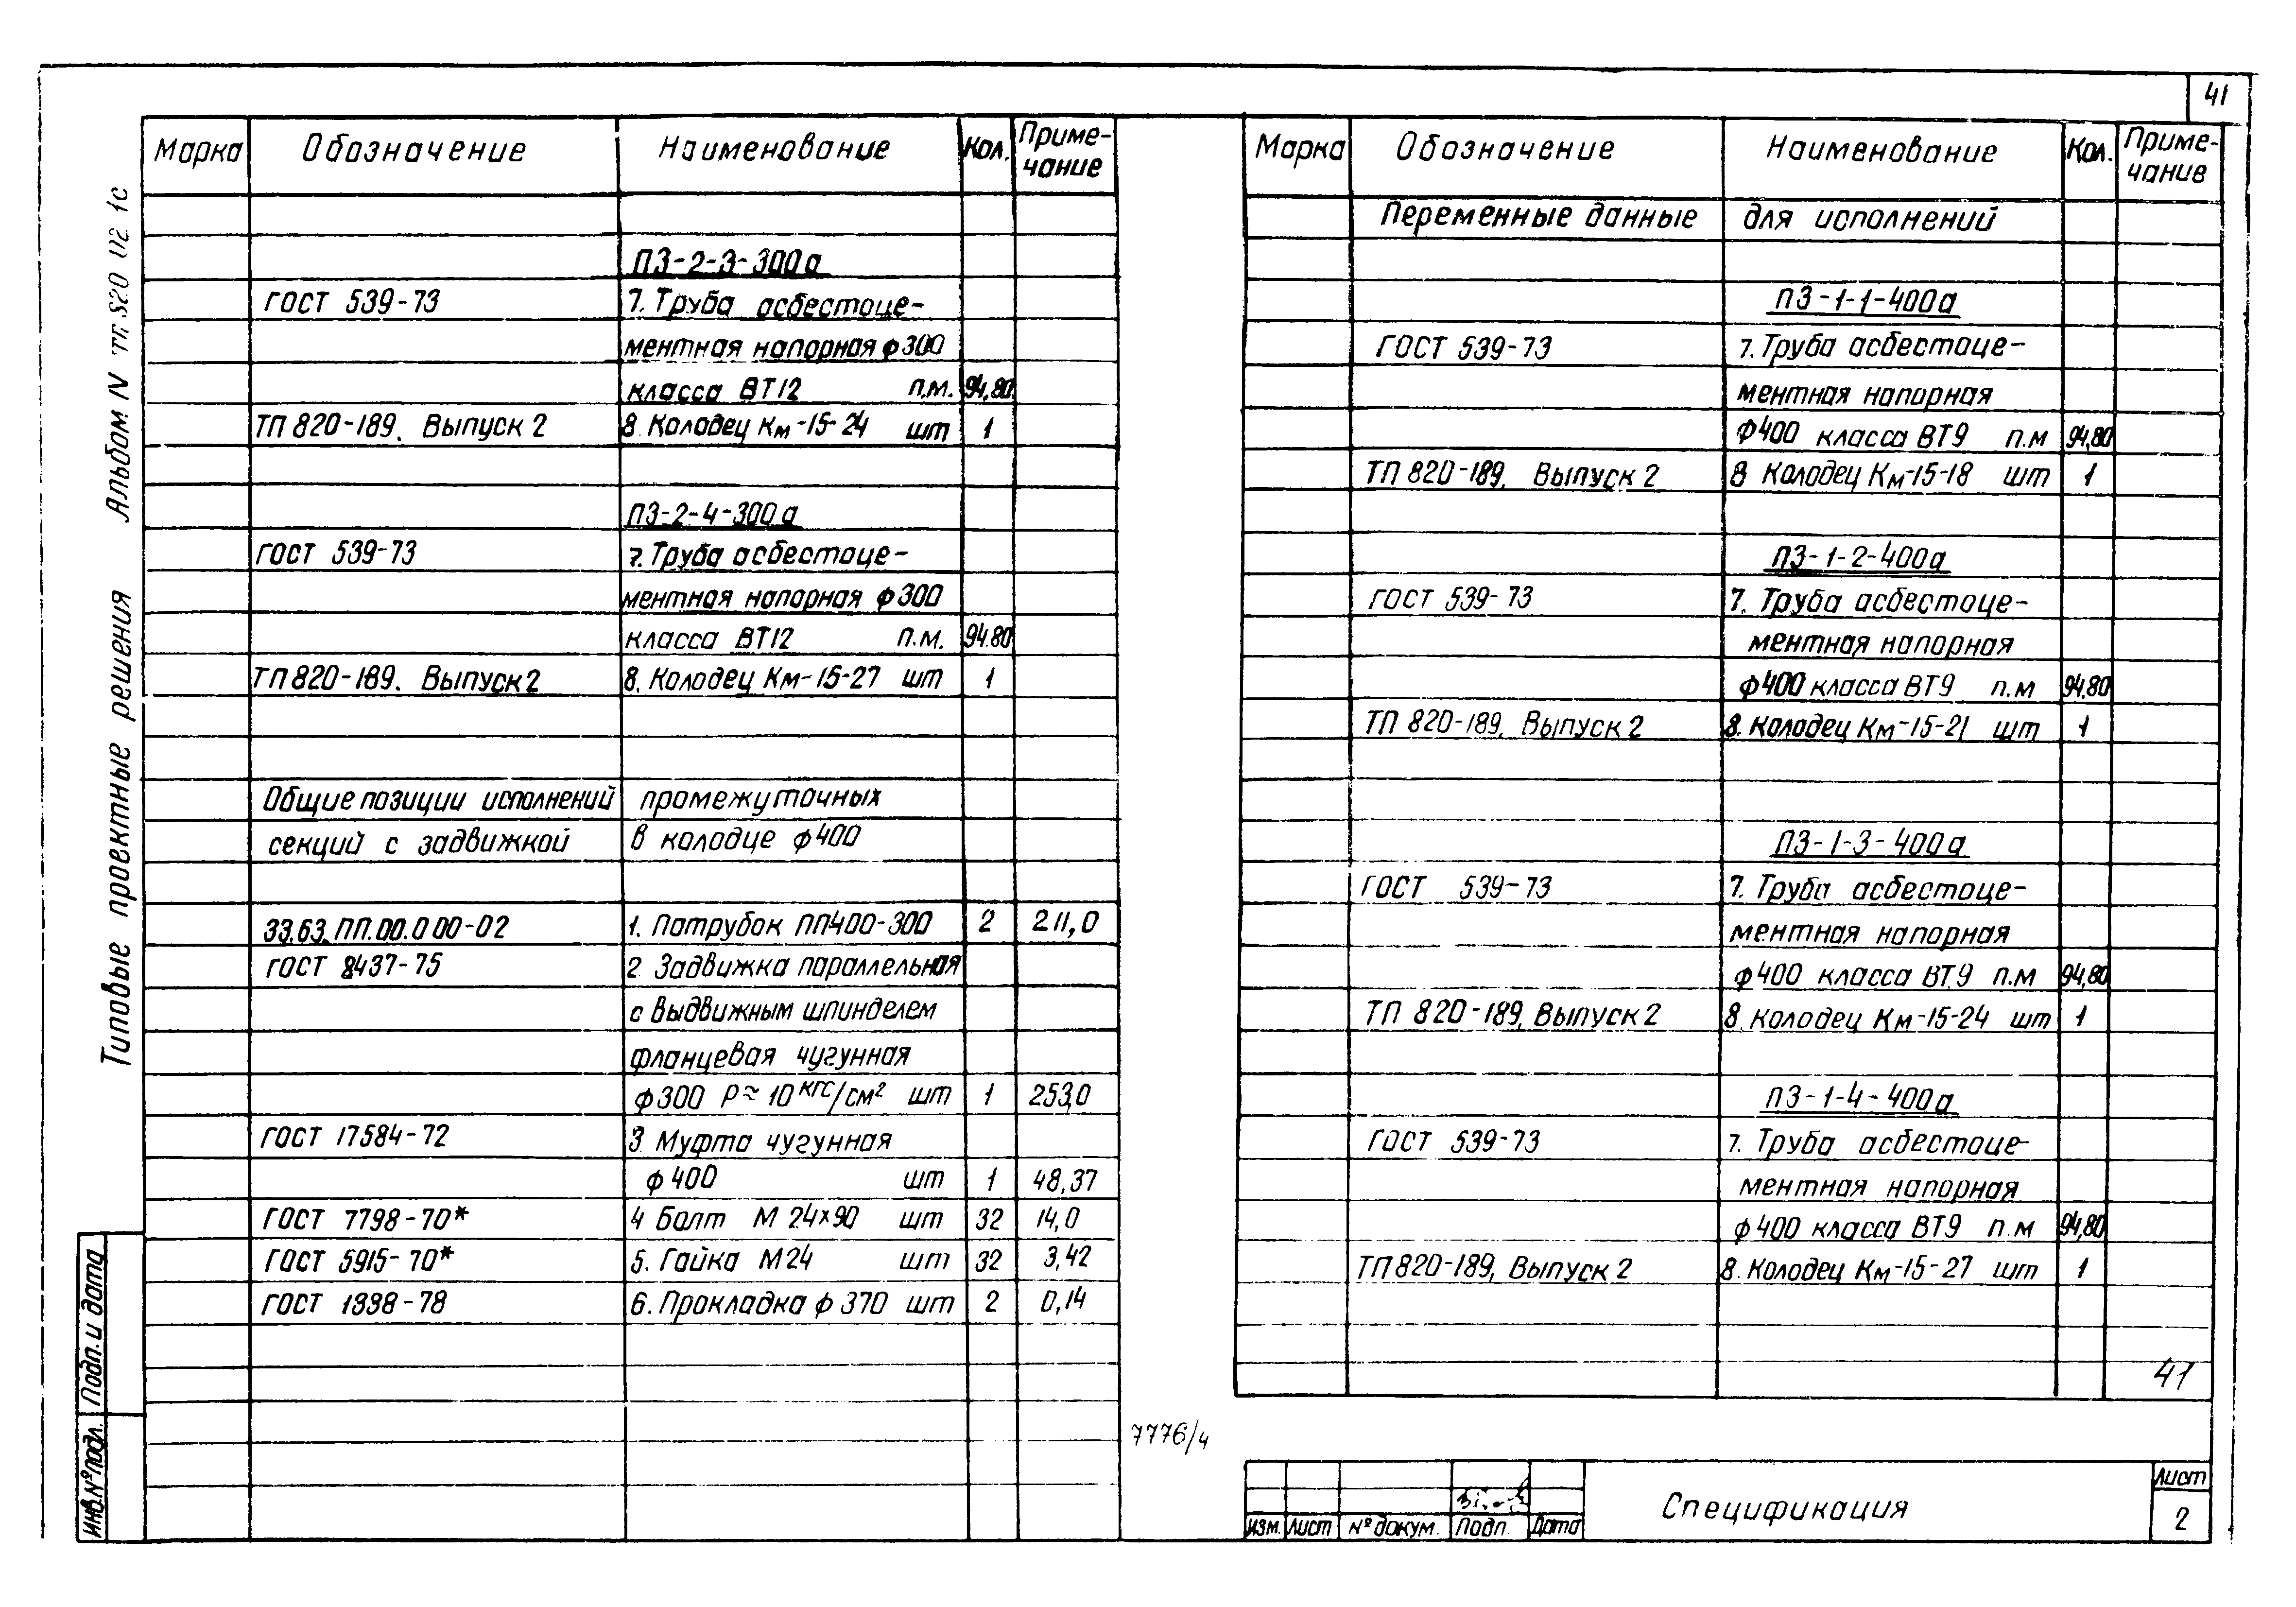 41
Типовые проектные решения Альбом IV
Марка Обозначение Наименование Кол. Приме-
чание
ПЗ-2-3-300а
ГОСТ 539-73 7. Труба асбестоце-
ментная напорная ф300
класса ВТ12 п.м. 94,80
ТП 820-189. Выпуск 2 8. Колодец Км-15-24 шт 1
ПЗ-2-4-300а
ГОСТ 539-73 7. Труба асбестоце-
ментная напорная ф300
класса ВТ12 п.м. 94.80
ТП 820-189. Выпуск 2 8. Колодец Км-15-27 шт 1
Общие позиции исполнений промежуточных
секций с задвижкой в колодце ф400
33.63.ПП.00.000-02 1. Патрубок ПП400-300 2 211,0
ГОСТ 8437-75 2 Задвижка параллельная
с выдвижным шпинделем
фланцевая чугунная
ф300 Р≈10 кгс/см² шт 1 253,0
ГОСТ 17584-72 3 Муфта чугунная
ф400 шт 1 48,37
ГОСТ 7798-70* 4 Болт М 24х90 шт 32 14,0
ГОСТ 5915-70* 5. Гайка М24 шт 32 3,42
ГОСТ 1338-78 6. Прокладка ф 370 шт 2 0,14
Марка Обозначение Наименование Кол. Приме-
чание
Переменные данные для исполнений
ПЗ-1-1-400а
ГОСТ 539-73 7. Труба асбестоце-
ментная напорная
ф400 класса ВТ9 п.м 94,80
ТП 820-189. Выпуск 2 8 Колодец Км-15-18 шт 1
ПЗ-1-2-400а
ГОСТ 539-73 7. Труба асбестоце-
ментная напорная
ф400 класса ВТ9 п.м 94,80
ТП 820-189. Выпуск 2 8. Колодец Км-15-21 шт 1
ПЗ-1-3-400а
ГОСТ 539-73 7. Труба асбестоце-
ментная напорная
ф400 класса ВТ9 п.м 94,80
ТП 820-189, Выпуск 2 8. Колодец Км-15-24 шт 1
ПЗ-1-4-400а
ГОСТ 539-73 7. Труба асбестоце-
ментная напорная
ф400 класса ВТ9 п.м 94,80
ТП 820-189, Выпуск 2 8. Колодец Км-15-27 шт 1
41
7776/4
Инв.№подл. Подп. и дата
Изм. Лист № докум. Подп. Дата
Спецификация
Лист
2